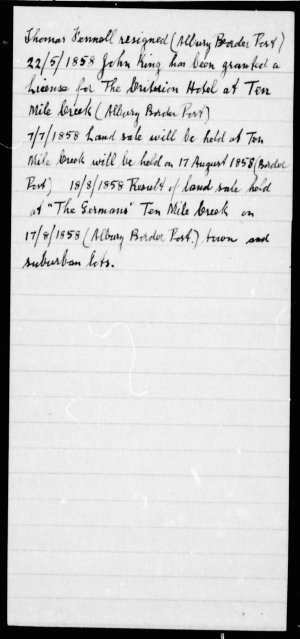 Thomas Fennell resigned (Albury Border Post)
22/5/1858 John King has been granted a
License for The Criterion Hotel at Ten
Mile Creek (Albury Border Post)
7/7/1858 Land sale will be held at Ten
Mile Creek will be held on 17 August 1858 (Border
Post) 18/8/1858 Result of land sale held
at "The Germans" Ten Mile Creek on
17/8/1858 (Albury Border Post.) town and
suburban lots.